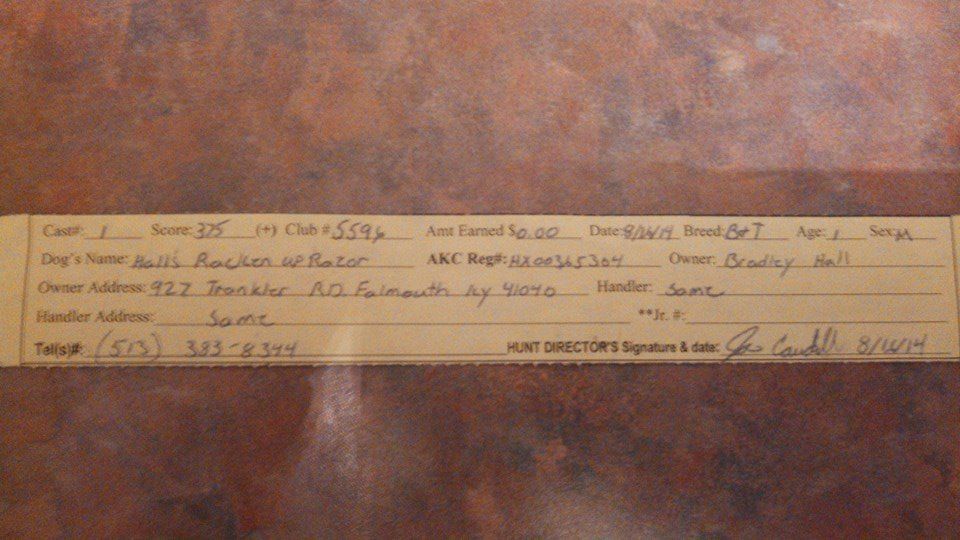 Cast#: 1 Score: 375 (+) Club # 5596 Amt Earned $0.00 Date: 8/16/14 Breed: B&T Age: 1 Sex: M
Dog's Name: Hall's Racken up Razor AKC Reg#: HX00365304 Owner: Bradley Hall
Owner Address: 927 Trankler RD. Falmouth Ky 41040 Handler: Same
Handler Address: Same **Jr. #:
Tel(s)#: (513) 383-8344 HUNT DIRECTOR'S Signature & date: 8/16/14